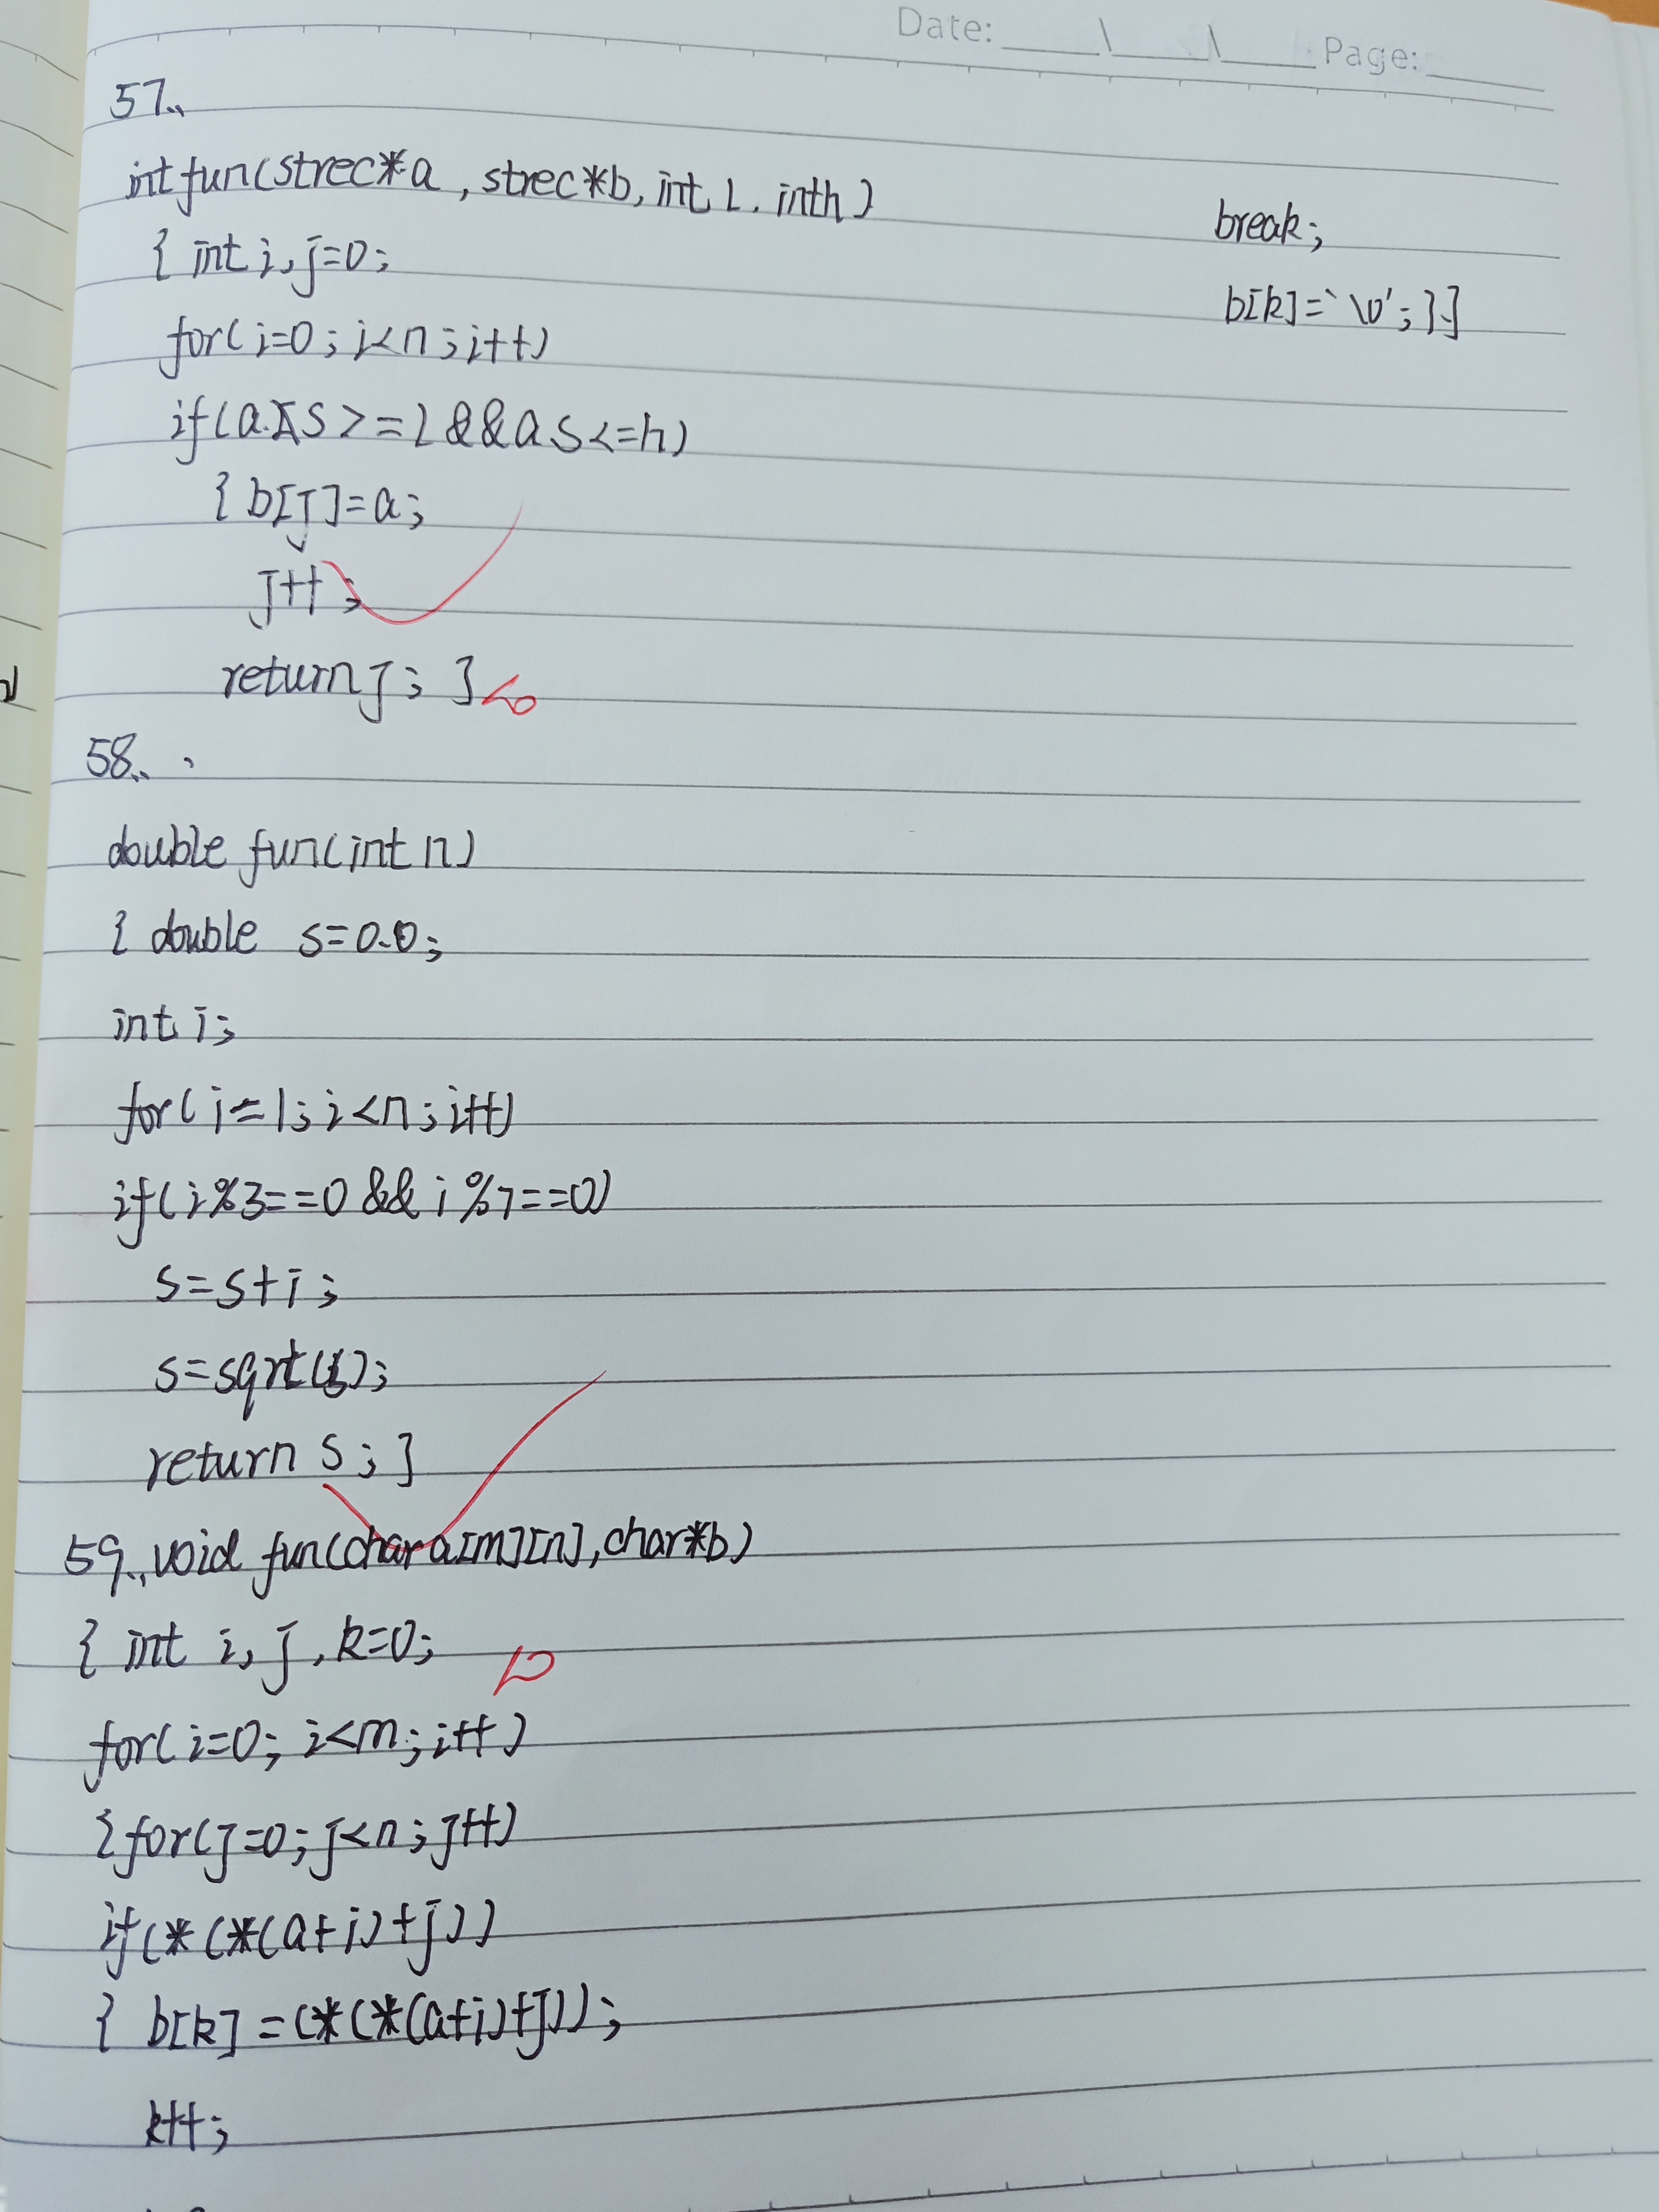 Date: Page:
57.
int fun(strec*a, strec*b, int l, int h)
{ int i, j=0;
for(i=0; i<n; i++)
if(a.s>=l&&a s<=h)
{ b[j]=a;
j++;
return j; }
58.
double fun(int n)
{ double s=0.0;
int i;
for(i=1; i<n; i++)
if(i%3==0&&i%7==0)
s=s+i;
s=sqrt(s);
return s; }
59., void fun(char a[m][n], char*b)
{ int i, j, k=0;
for(i=0; i<m; i++)
{for(j=0; j<n; j++)
if(*(*(a+i)+j))
{ b[k]=(*(*(a+i)+j));
k++;
break;
b[k]=`\0'; }}